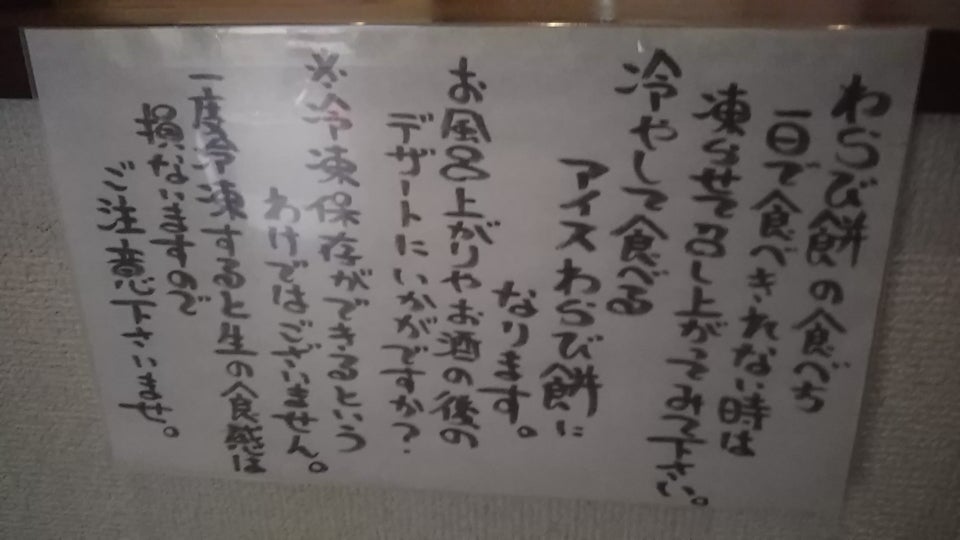 わらび餅の食べち
一日で食べきれない時は
凍らせて召し上がってみて下さい。
冷やして食べる
アイスわらび餅に
なります。
お風呂上がりやお酒の後の
デザートにいかがですか？
※冷凍保存ができるという
わけではございません。
一度冷凍すると生の食感は
損ないますので
ご注意下さいませ。